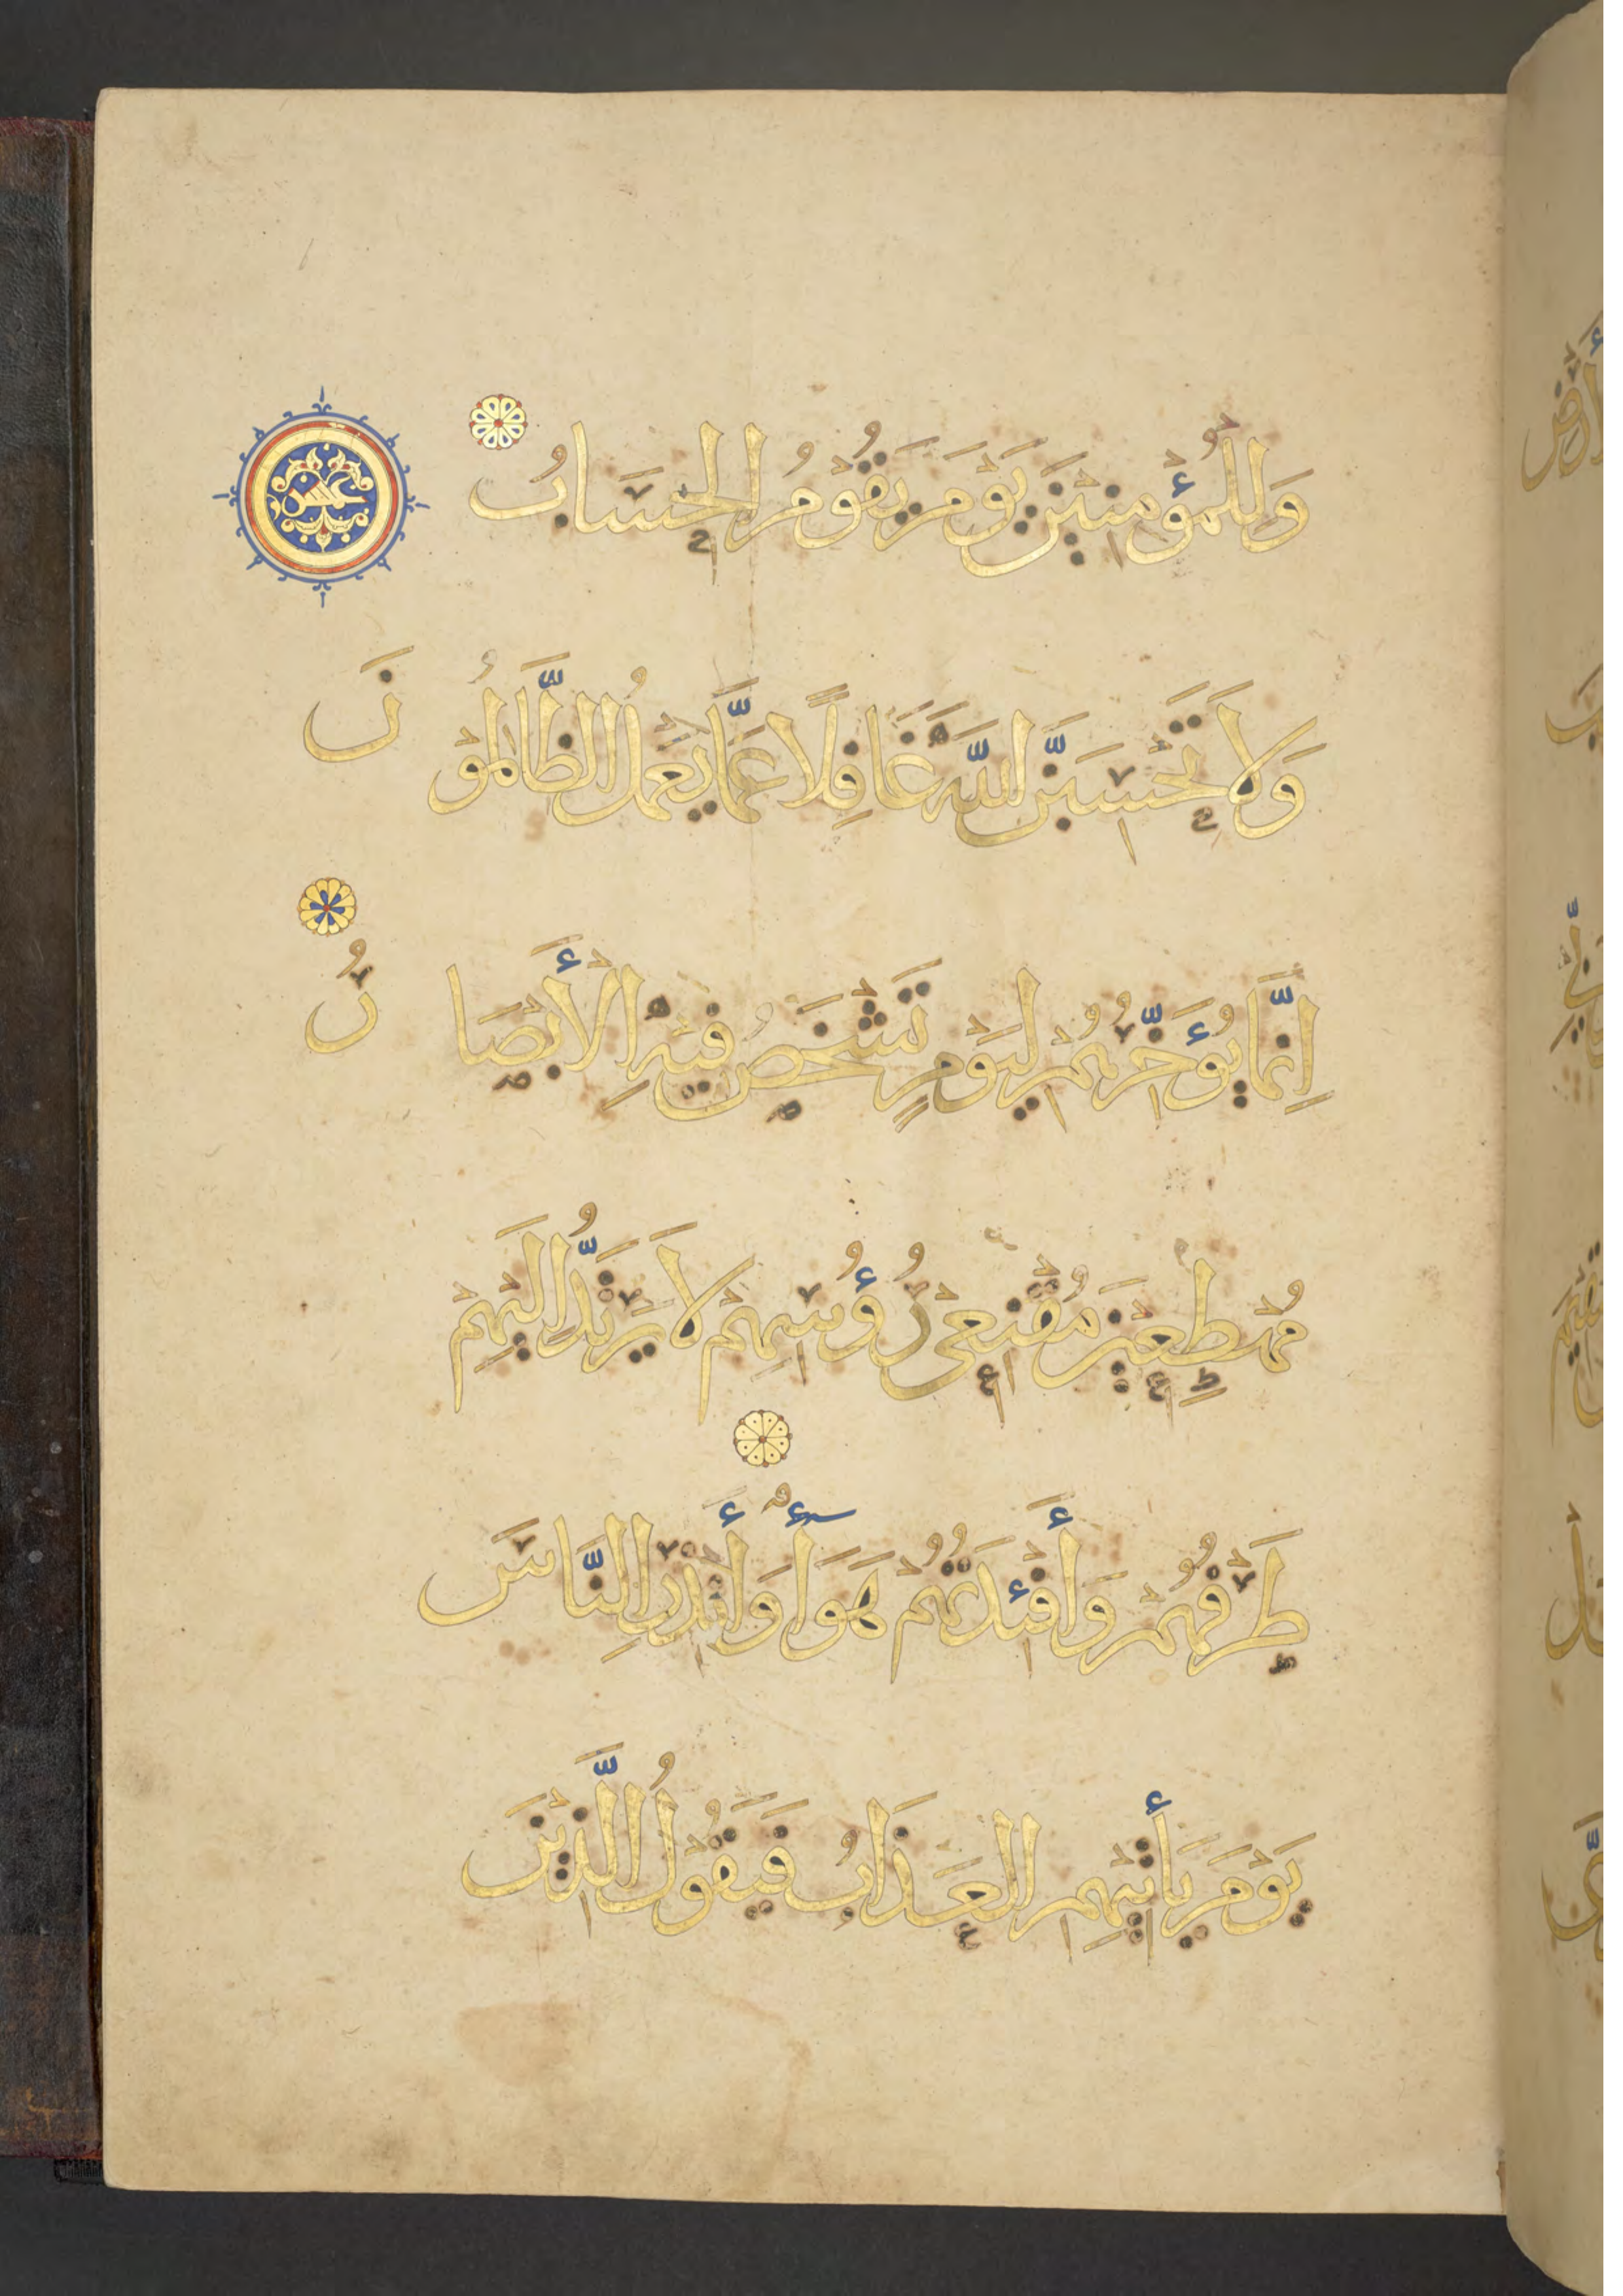 وَلِلْمُؤْمِنِيْنَ يَوْمَ يَقُوْمُ الْحِسَابُ عشر
وَلَا تَحْسِبَنَّ اللَّهَ غَافِلًا عَمَّا يَعْمَلُ الظَّالِمُوْنَ
اِنَّمَا يُؤَخِّرُهُمْ لِيَوْمٍ تَشْخَصُ فِيْهِ الْأَبْصَارُ
مُهْطِعِيْنَ مُقْنِعِيْ رُؤُسِهِمْ لَا يَرْتَدُّ اِلَيْهِمْ
طَرْفُهُمْ وَأَفْئِدَتُهُمْ هَوَأٌ وَأَنْذِرِ النَّاسَ
يَوْمَ يَأْتِيْهِمِ الْعَذَابُ فَيَقُوْلُ الَّذِيْنَ